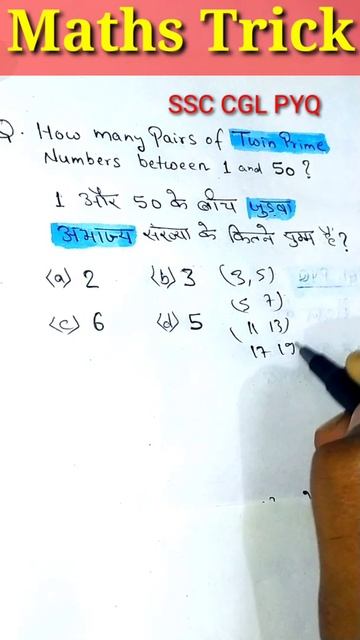 Maths Trick
SSC CGL PYQ
Q. How many Pairs of Twin Prime
Numbers between 1 and 50?
1 और 50 के बीच जुड़वा
अभाज्य संख्या के कितने युग्म हैं?
(a) 2 (b) 3
(c) 6 (d) 5
(3, 5)
(5 7)
(11 13)
17 19